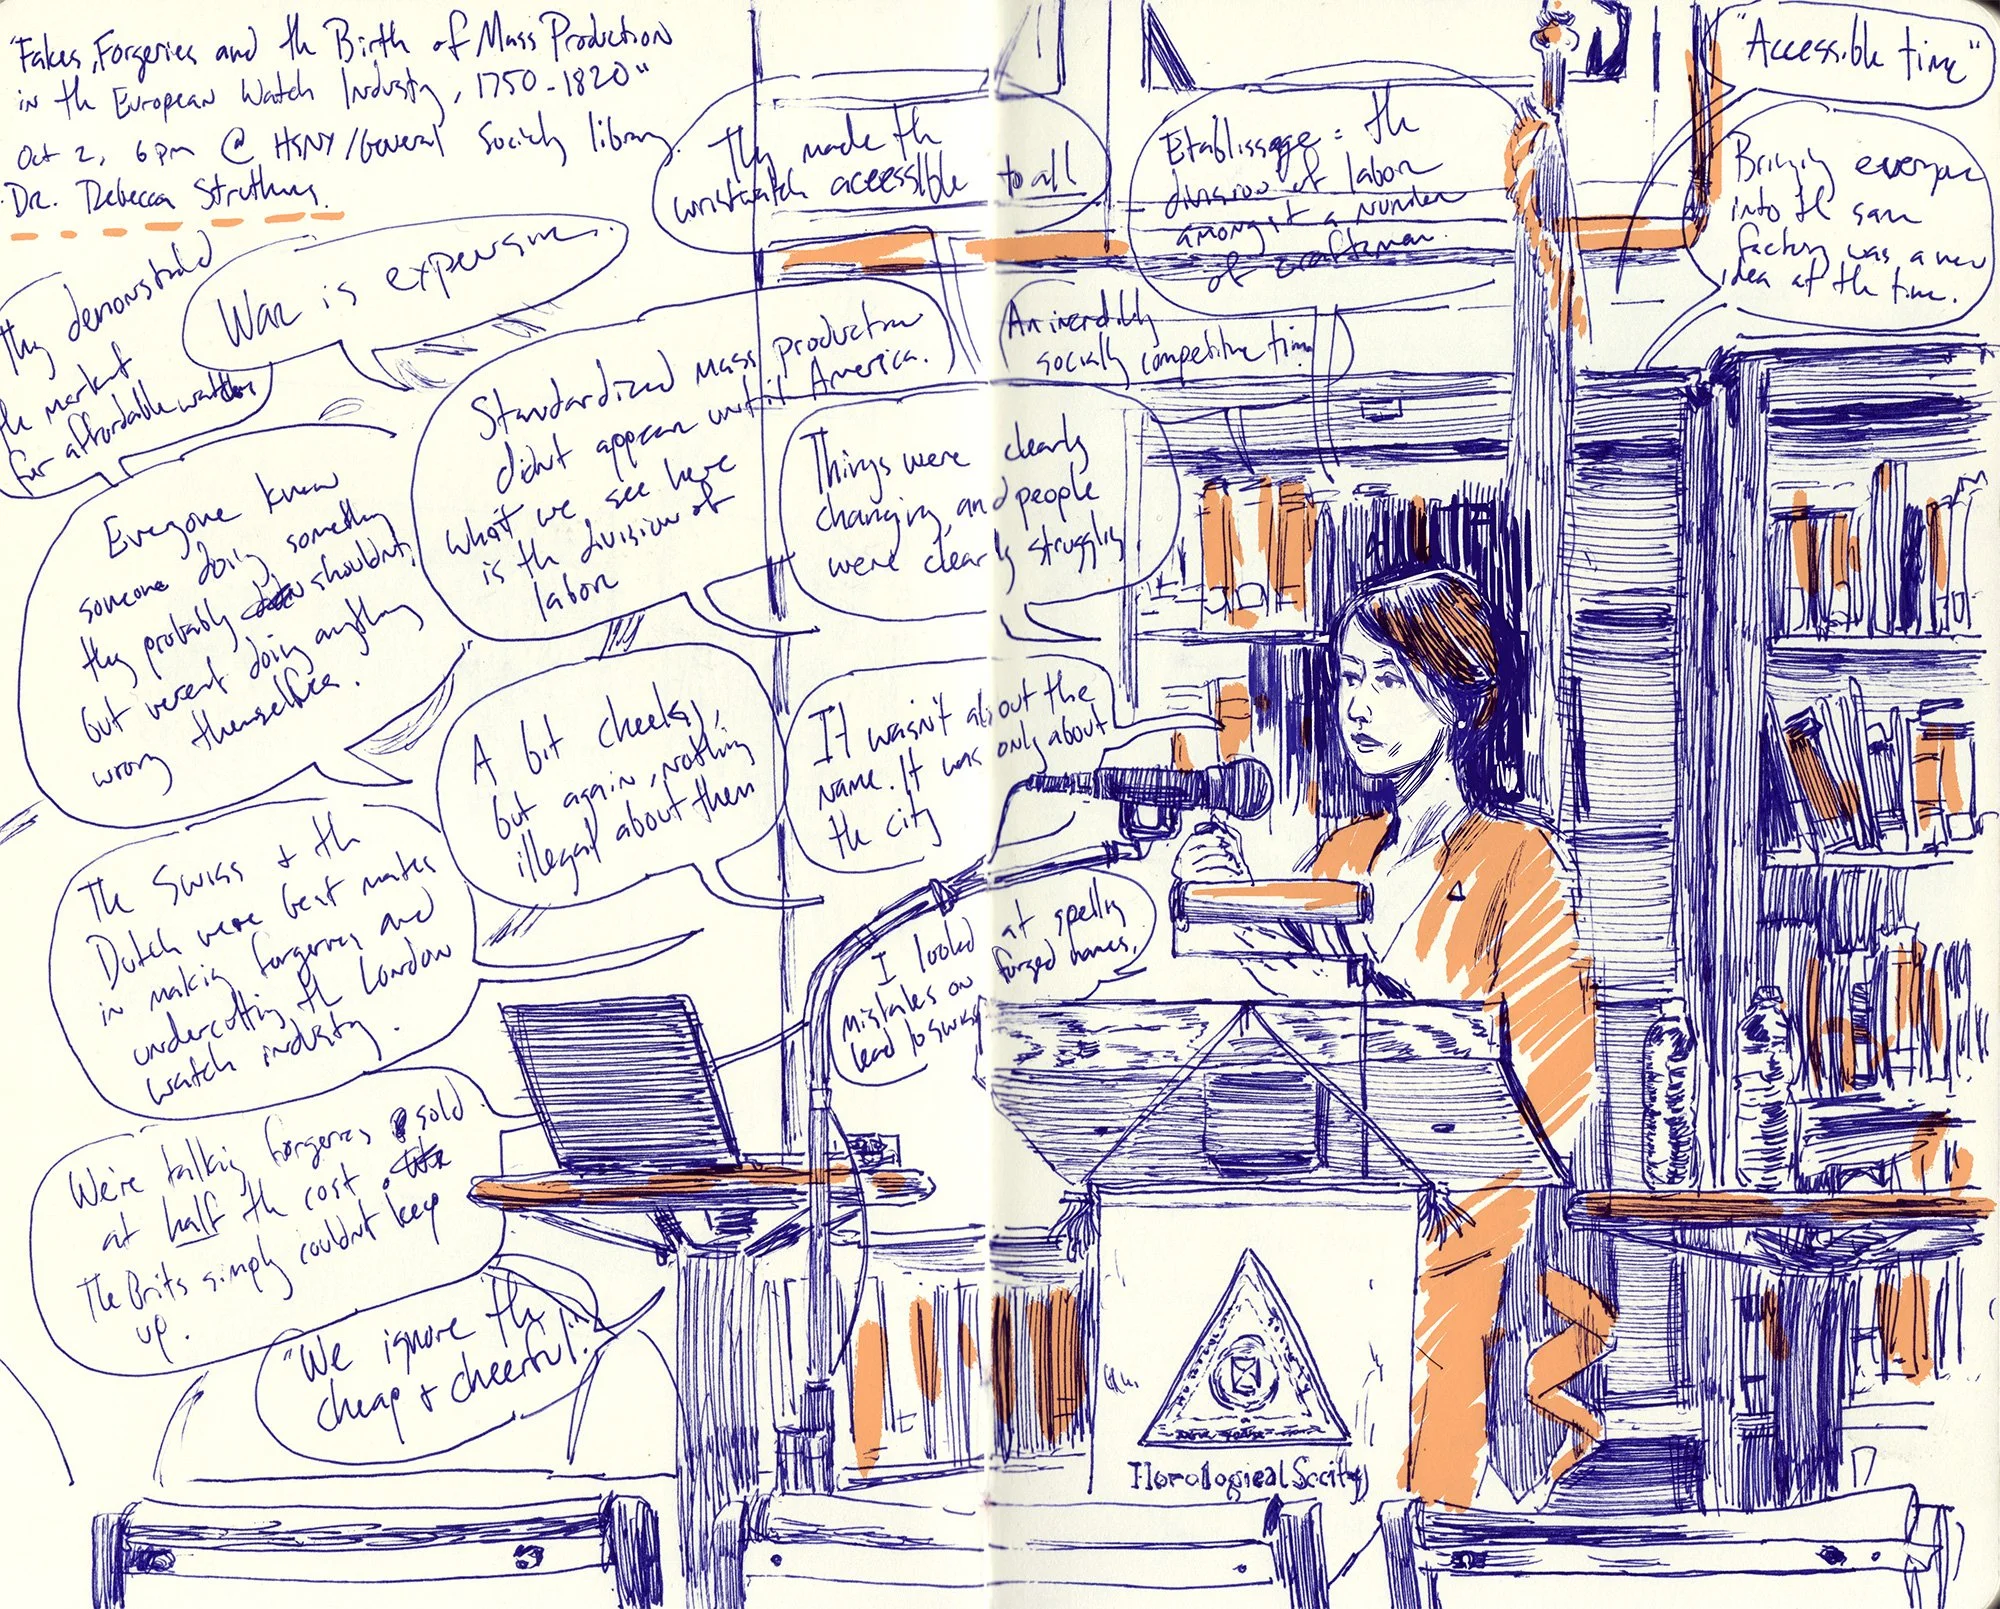 "Fakes, Forgeries and th Birth of Mass Production
in th European Watch Industry, 1750-1820"
Oct 2, 6pm @ HSNY/General Society library.
Dr. Rebecca Struthers.
They demonstrated
the market
for affordable watches
War is expensive.
They made th
wristwatch accessible to all
Etablissage = th
division of labor
amongst a number
of craftsman.
"Accessible time"
Bringing everyone
into th same
factory was a new
idea at th time.
Standardized mass production
didn't appear until America.
what we see here
is th division of
labor
An incredibly
socially competitive time
Things were clearly
changing, and people
were clearly struggling
Everyone knew
someone doing something
they probably shouldn't,
but weren't doing anything
wrong themselves.
A bit cheeky,
but again, nothing
illegal about them
It wasn't about the
name. It was only about
the city
The Swiss + th
Dutch were best mates
in making forgeries and
undercutting th London
watch industry.
I looked at spelling
mistakes on forged names.
lead to Swiss
We're talking forgeries sold
at half th cost.
The Brits simply couldn't keep
up.
"We ignore th
cheap + cheerful."
Horological Society